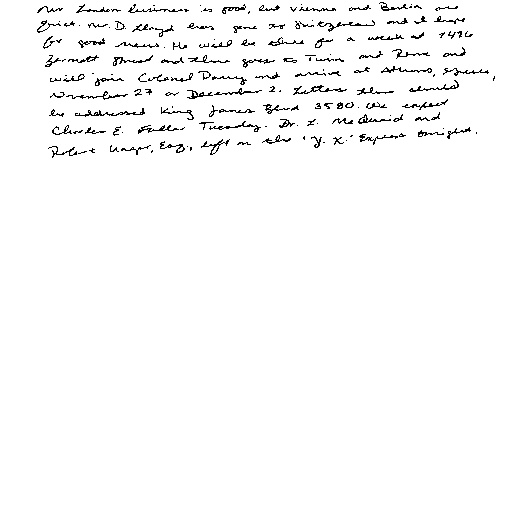 Our London business is good, but Vienna and Berlin are
quiet. Mr. D. Lloyd has gone to Switzerland and I hope
for good news. He will be there for a week at 1496
Zermott Street and then goes to Turin and Rome and
will join Colonel Parry and arrive at Athens, Greece,
November 27 or December 2. Letters there should
be addressed King James Blvd 3580. We expect
Charles E. Fuller Tuesday. Dr. L. McQuaid and
Robert Unger, Esq., left on the 'Y. X.' Express tonight.